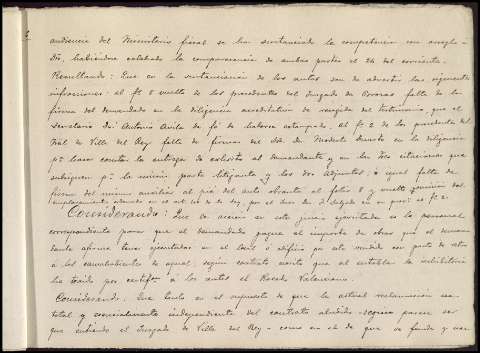 audiencia del Ministerio fiscal se ha sustanciado la competencia con arreglo
habiéndose celebrado la comparecencia de ambas partes el de corriente.
Resultando: Que en la sustanciación de los autos son de advertir las siguientes
infracciones: al fº 5 vuelto de los procedentes del Juzgado de falta de la
firma del demandado en la diligencia acreditativa de recogida del testimonio, que el
Secretario Dn. Antonio Avila da fé de haberse estampado, al fº 2 de los procedentes del
de Villa del Rey falta de firma del en la diligencia
pª hacer constar la entrega de exhorto al demandante y en las dos citaciones que
subsiguen pª la misma parte litigante y los dos adjuntos; é igual falta de
firma del mismo auxiliar al pié del auto obrante al folio 8 y vuelto
fº 2.
Considerando: Que la acción en este juicio ejercitada es la personal
correspondiente para que el demandado pague el importe de obras que el deman-
dante afirma tener ejecutadas en el edificio
á los causahabientes de aquel, según contrato escrito que al entablar la
ha traido por á los autos el Valeriano.
Considerando: Que tanto en el supuesto de que la actual reclamación sea
total y esencialmente independiente del contrato aludido - según parece ser
que entiende el Juzgado de Villa del Rey - como en el de que se funde y